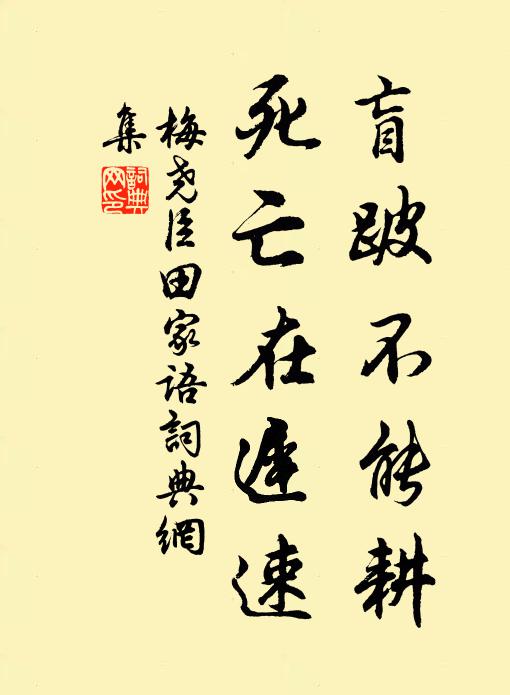 盲跛不能耕
死亡在遲速
梅尧臣田家语詞典網
集
詞典网印